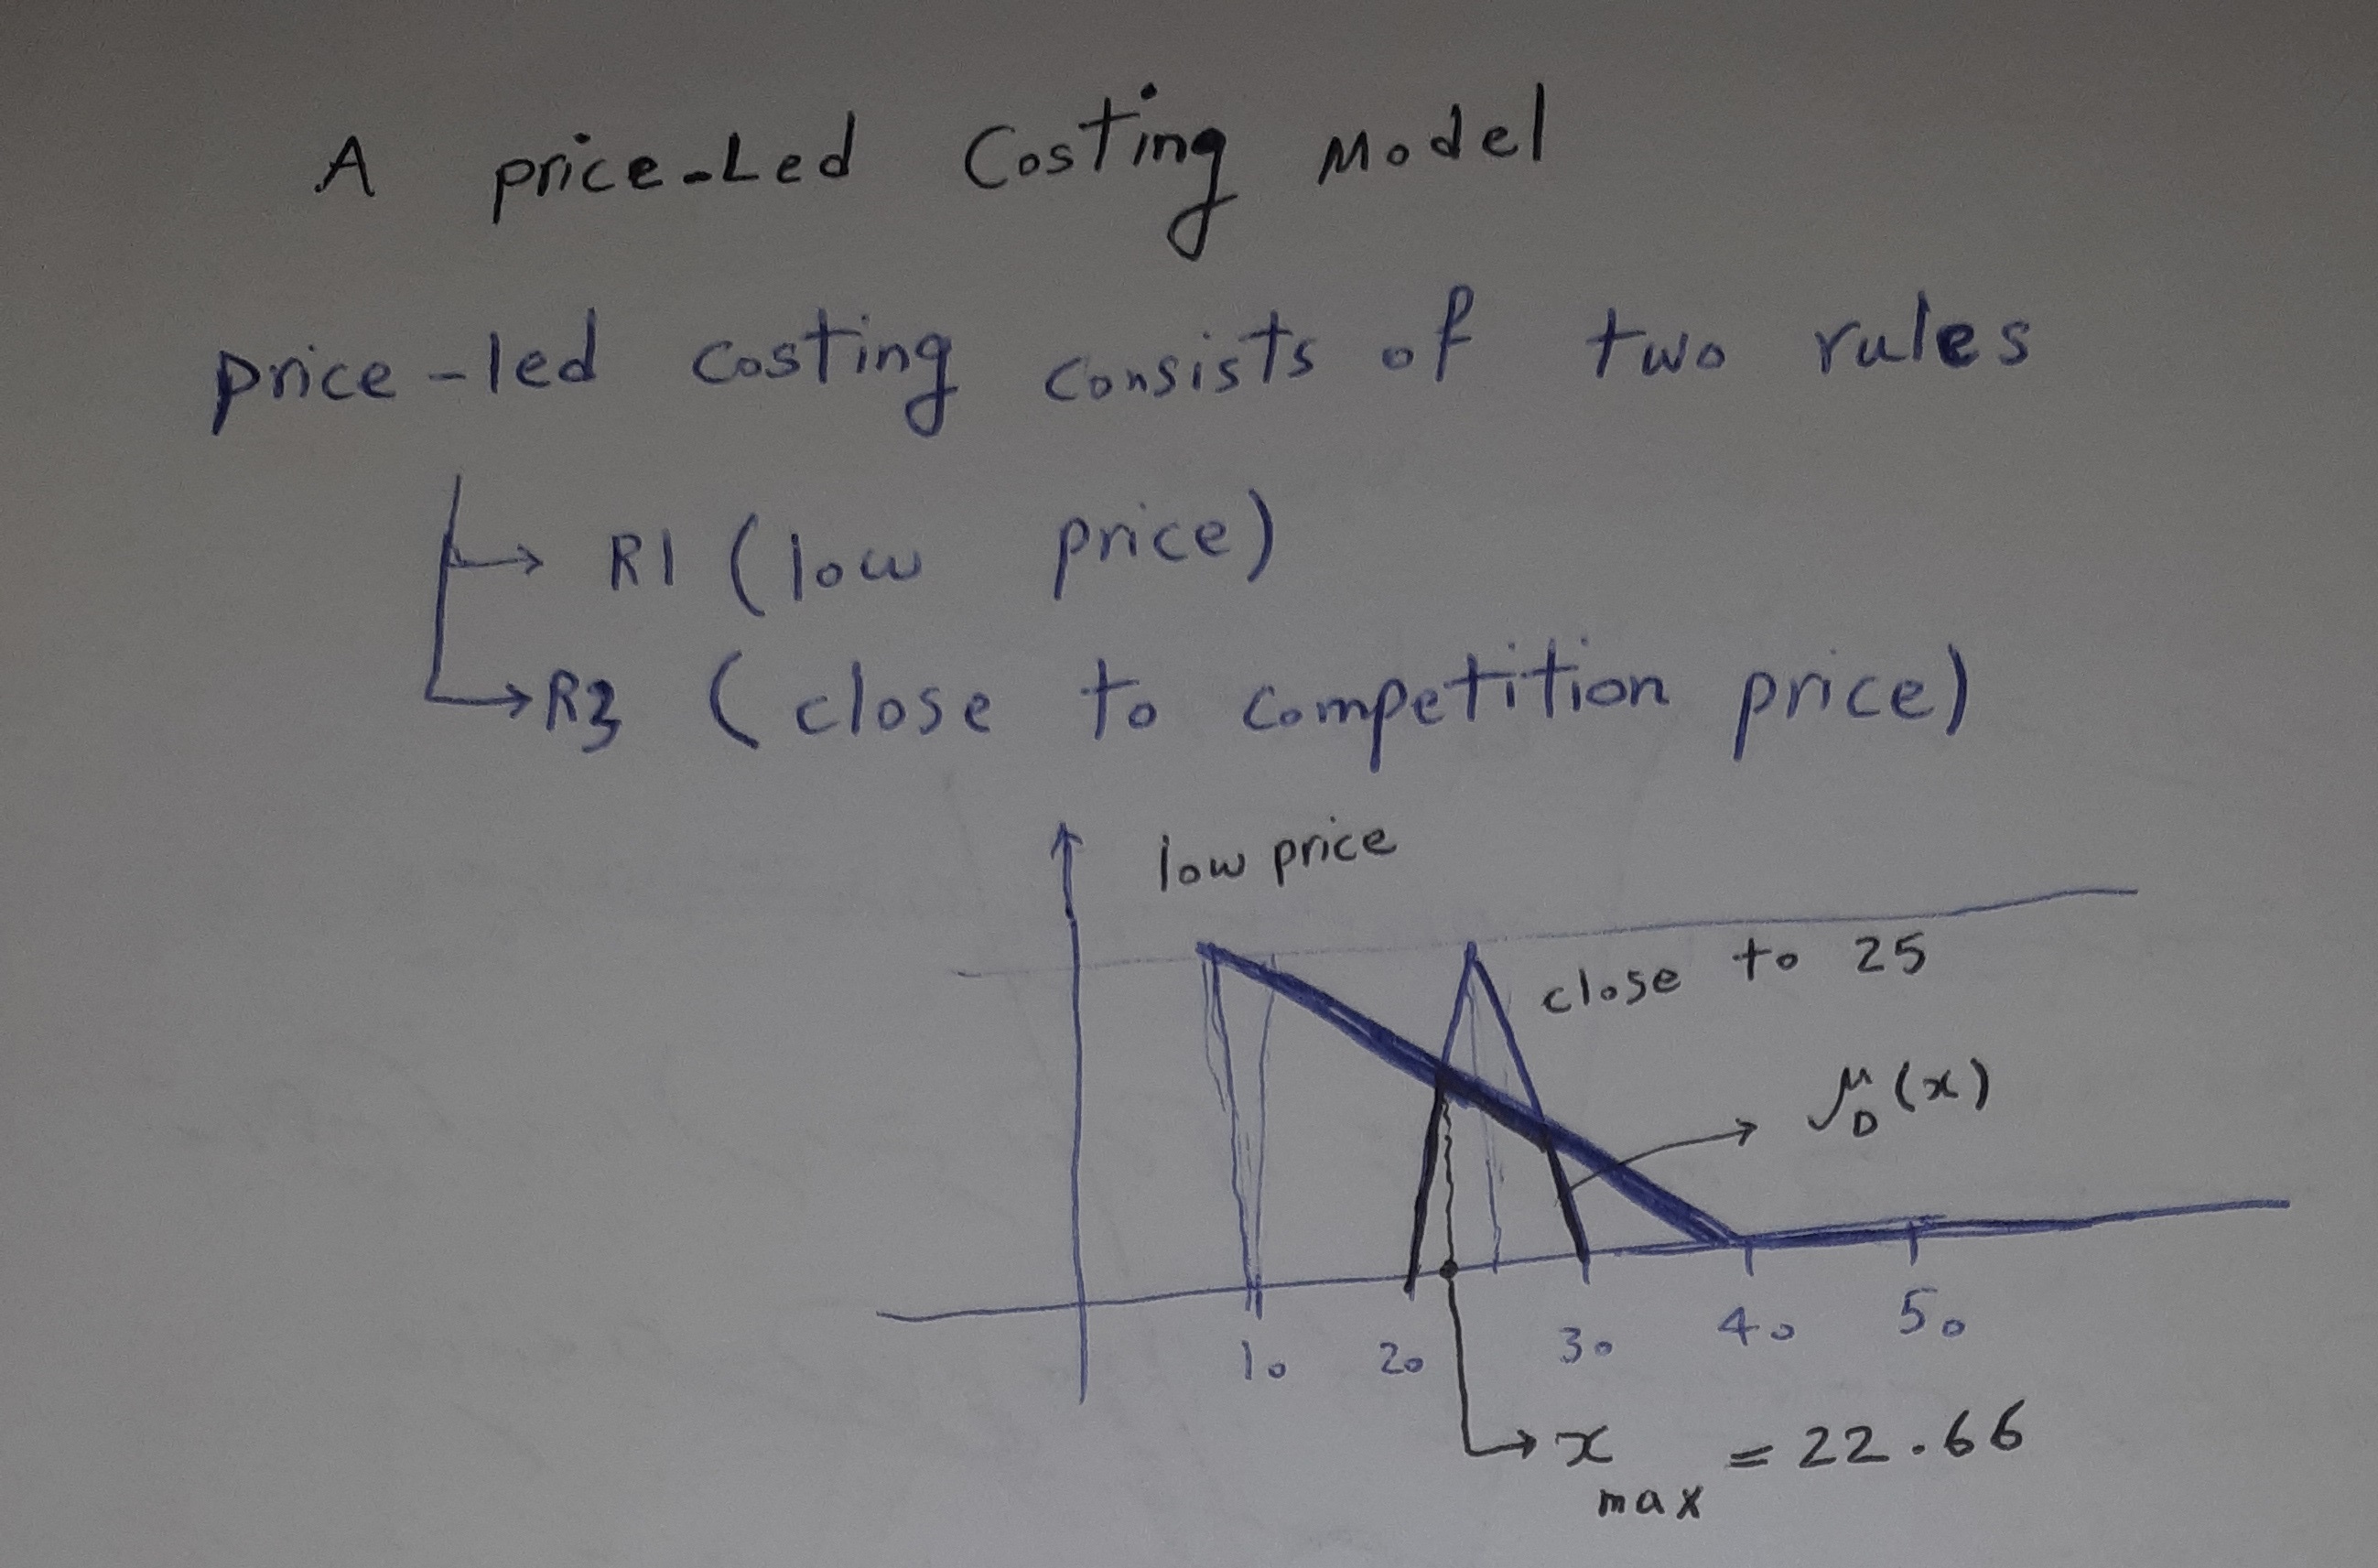 A price-Led Costing Model
price-led costing consists of two rules
→ R1 (low price)
→ R3 (close to competition price)
low price
close to 25
μD(x)
10 20 30 40 50
→ x max = 22.66